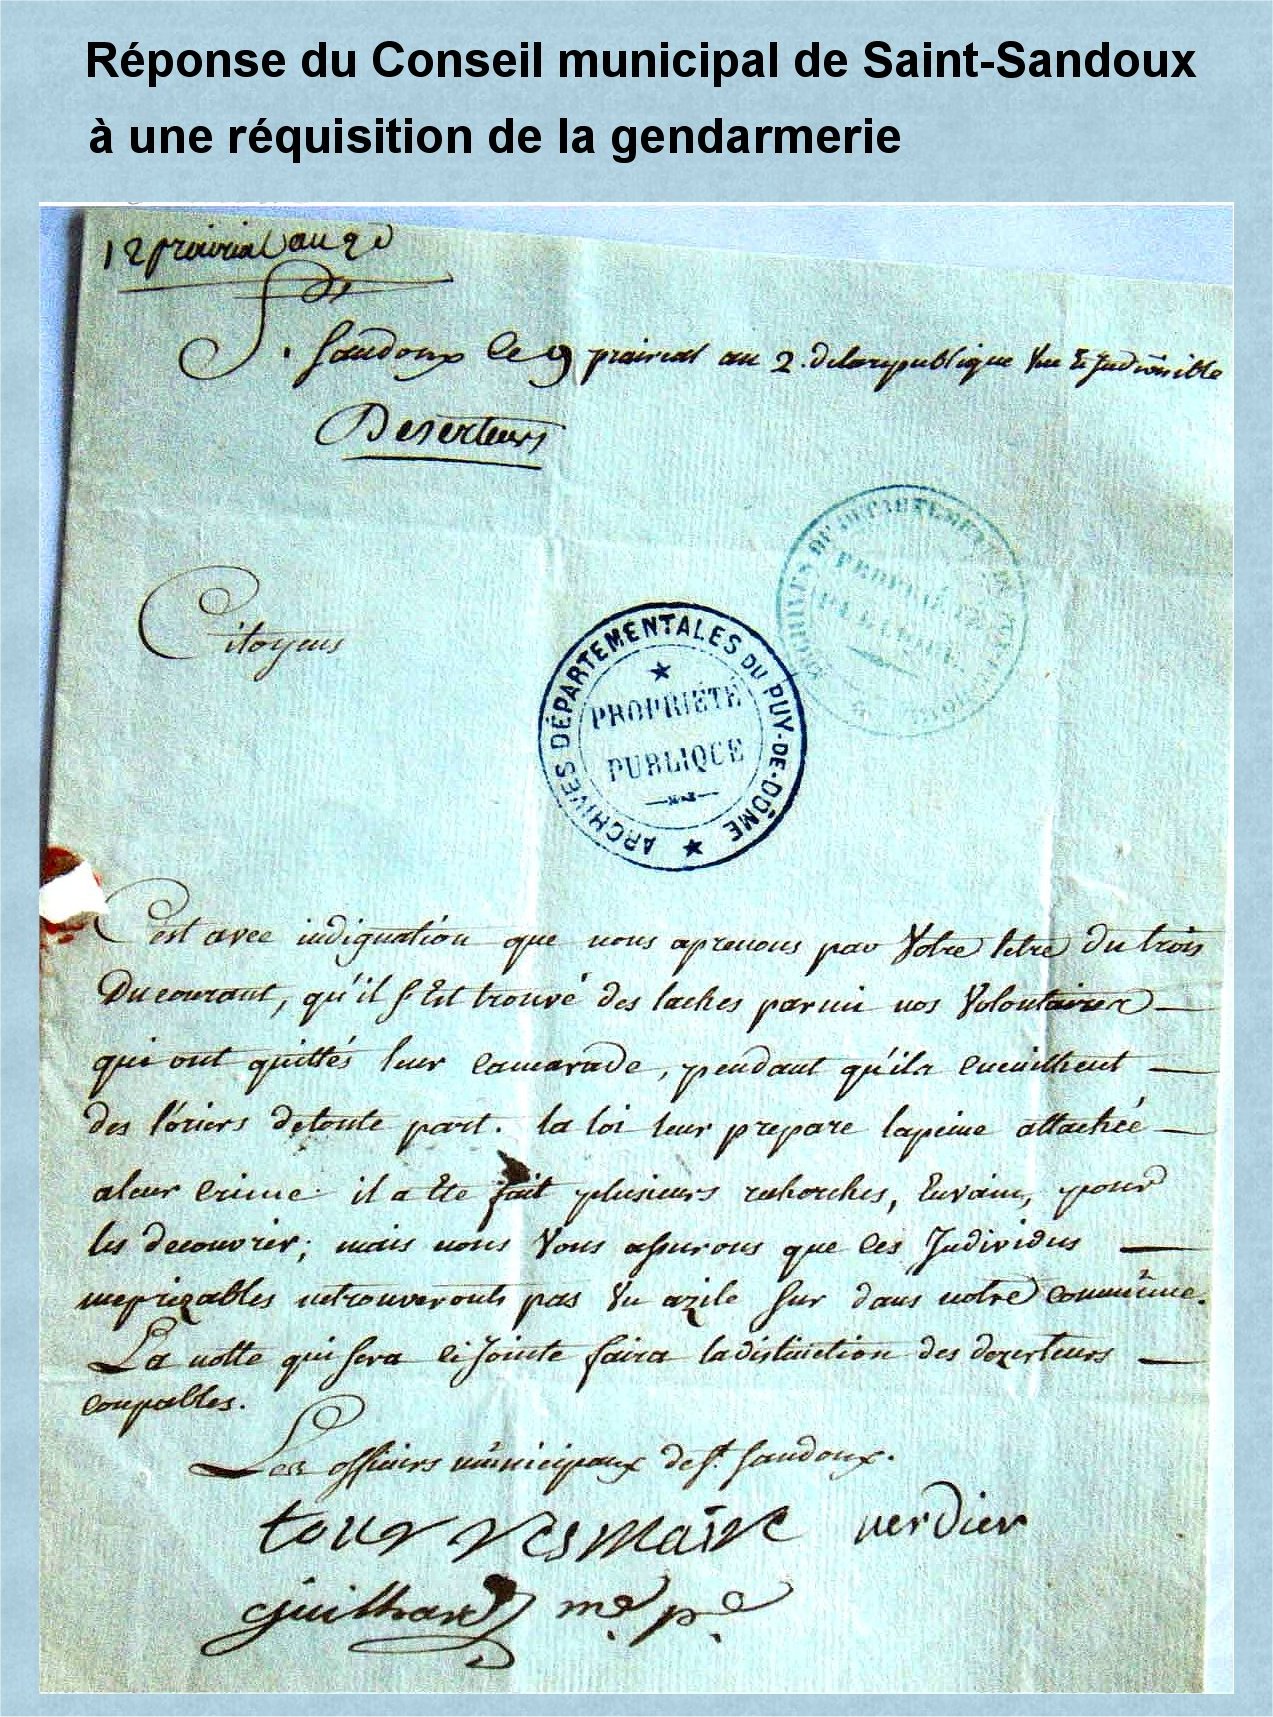 Réponse du Conseil municipal de Saint-Sandoux
à une réquisition de la gendarmerie
12 prairial an 2d
St. Sandoux le 9 prairial an 2. de la republique Une & Indivisible
Deserteurs
ARCHIVES DU DÉPARTEMENT DU PUY-DE-DÔME
PROPRIÉTÉ
PUBLIQUE
Citoyens
ARCHIVES DÉPARTEMENTALES DU PUY-DE-DÔME
PROPRIÉTÉ
PUBLIQUE
C'est avec indignation que nous aprenons par Votre letre du trois
Du courant, qu'il s'Est trouvé des laches parmi nos Volontaires
qui ont quittés leur camarade, pendant qu'ils cueuillent
des l'oriers de toute part. la loi leur prepare la peine attachée
a leur crime. il a Ete fait plusieurs recherches, Envain, pour
les decouvrir; mais nous Vous assurons que ces Individus
meprizables ne trouveronts pas Un azile sur dans notre commune.
La notte qui sera ci Jointe faira la distinction des dezerteurs
coupables.
Les officiers municipaux de St. Sandoux.
tourres maire verdier
Guilhard me. pe.